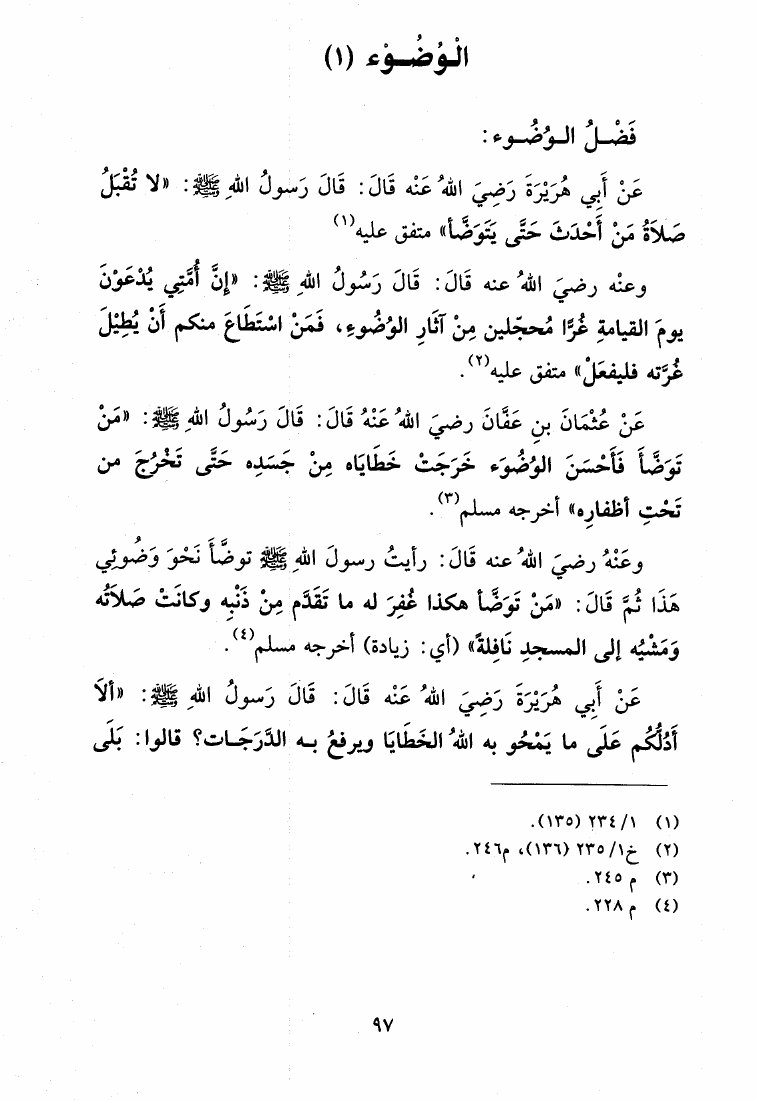 الْـوُضُــوْء (١)
فَضْـلُ الـوُضُـوء:
عَنْ أَبِي هُرَيْرَةَ رَضِيَ اللهُ عَنْه قَالَ: قَالَ رَسُولُ اللهِ ﷺ: «لا تُقْبَلُ
صَلاَةُ مَنْ أَحْدَثَ حَتَّى يَتَوَضَّأ» متفق عليه(١)
وعنْه رضيَ اللهُ عنه قَالَ: قَالَ رَسُولُ اللهِ ﷺ: «إِنَّ أُمَّتِي يُدْعَوْنَ
يومَ القيامةِ غُرًّا مُحجّلين مِنْ آثَارِ الوُضُوءِ، فَمَنْ اسْتَطَاعَ منكم أَنْ يُطِيْلَ
غُرَّته فليفعَلْ» متفق عليه(٢).
عَنْ عُثْمَانَ بنِ عَفَّانَ رضيَ اللهُ عَنْهُ قَالَ: قَالَ رَسُولُ اللهِ ﷺ: «مَنْ
تَوَضَّأَ فَأَحْسَنَ الوُضُوَء خَرَجَتْ خَطَايَاه مِنْ جَسَدِه حَتَّى تَخْرُجَ من
تَحْتِ أظفارِه» أخرجه مسلم(٣).
وعَنْهُ رضيَ اللهُ عنه قَالَ: رأيتُ رسولَ اللهِ ﷺ توضَّأَ نَحْوَ وَضُوئِي
هَذَا ثُمَّ قَالَ: «مَنْ تَوَضَّأ هكذا غُفِرَ له ما تَقَدَّم مِنْ ذَنْبِه وكانَتْ صَلاَتُه
وَمَشْيُه إلى المسجدِ نَافِلةً» (أي: زيادة) أخرجه مسلم(٤).
عَنْ أَبِي هُرَيْرَةَ رَضِيَ اللهُ عَنْه قَالَ: قَالَ رَسولُ اللهِ ﷺ: «ألاَ
أَدُلُّكُم عَلَى ما يَمْحُو به اللهُ الخَطَايَا ويرفعُ بـه الدَّرَجَـات؟ قالوا: بَلَى
(١) ٢٣٤/١ (١٣٥).
(٢) خ٢٣٥/١ (١٣٦)، م٢٤٦.
(٣) م ٢٤٥.
(٤) م ٢٢٨.
٩٧